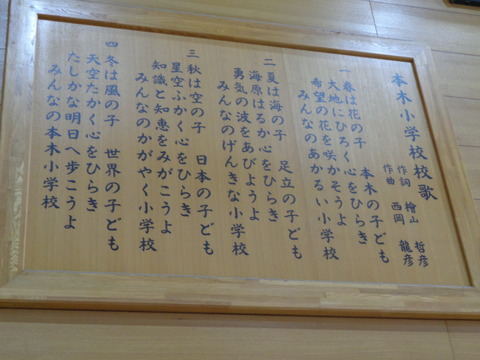 本木小学校校歌
作詞 檜山 哲彦
作曲 西岡 龍彦
一 春は花の子 本木の子ども
大地にひろく心をひらき
希望の花を咲かそうよ
みんなのあかるい小学校
二 夏は海の子 足立の子ども
海原はるか心をひらき
勇気の波をあびようよ
みんなのげんきな小学校
三 秋は空の子 日本の子ども
星空ふかく心をひらき
知識と知恵をみがこうよ
みんなのかがやく小学校
四 冬は風の子 世界の子ども
天空たかく心をひらき
たしかな明日へ歩こうよ
みんなの本木小学校